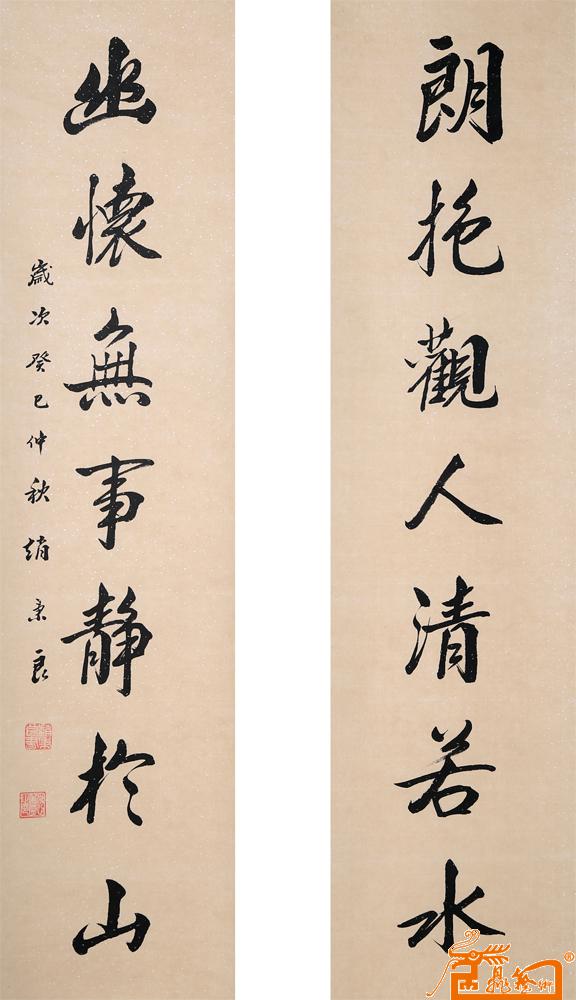 朗抱觀人清若水
幽懷無事静於山
歲次癸巳仲秋趙秉良